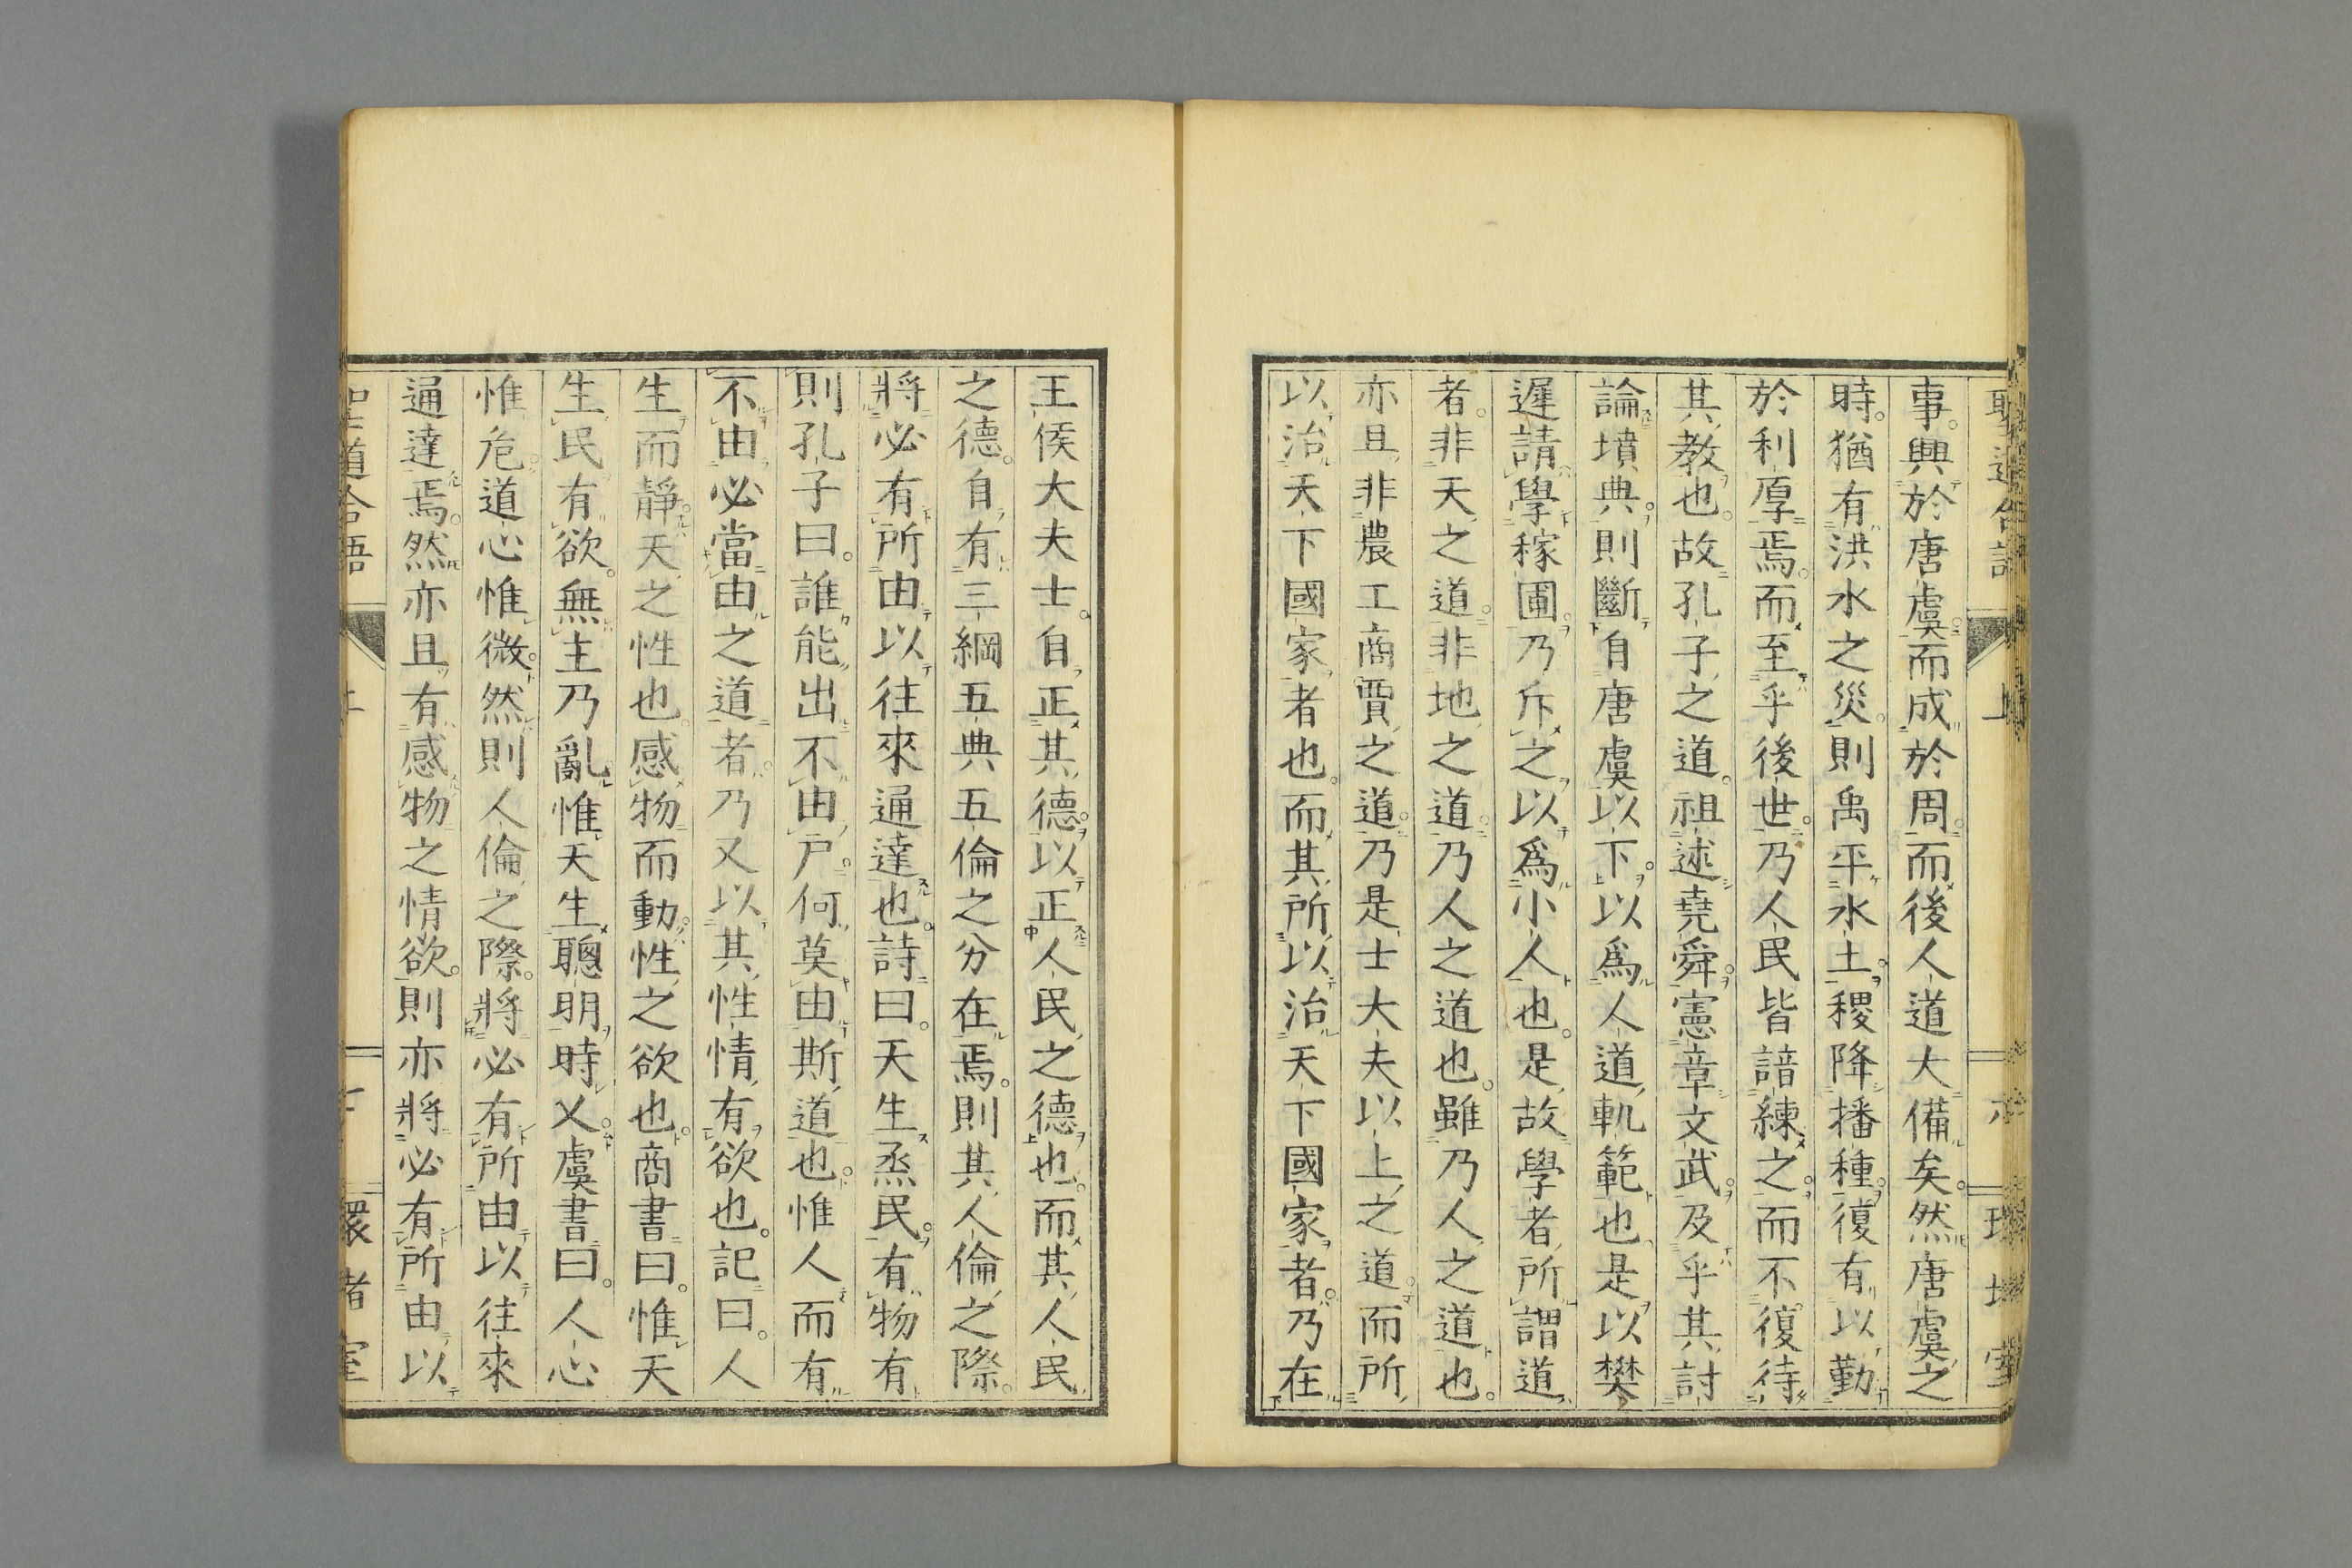 事。興於唐虞。而成於周。而後人道大備矣。然唐虞之
時。猶有洪水之災。則禹平水土。稷降播種。復有以勤
於利厚焉。而至乎後世。乃人民皆諳練之。而不復待
其教也。故孔子之道。祖述堯舜。憲章文武。及乎其討
論墳典。則斷自唐虞以下。以爲人道軌範也。是以樊
遲請學稼圃。乃斥之以爲小人也。是故學者所謂道
者。非天之道。非地之道。乃人之道也。雖乃人之道也。
亦且非農工商賈之道。乃是士大夫以上之道。而所
以治天下國家者也。而其所以治天下國家者。乃在
王侯大夫士。自正其德。以正人民之德也。而其人民
之德。自有三綱五典五倫之分在焉。則其人倫之際。
將必有所由以往來通達也。詩曰。天生烝民。有物有
則孔子曰。誰能出不由戸。何莫由斯道也。惟人而有
不由必當由之道者。乃又以其性情有欲也。記曰。人
生而靜。天之性也。感物而動。性之欲也。商書曰。惟天
生民有欲。無主乃亂。惟天生聰明時乂。虞書曰。人心
惟危道心惟微。然則人倫之際。將必有所由以往來
通達焉。然亦且有感物之情欲。則亦將必有所由以